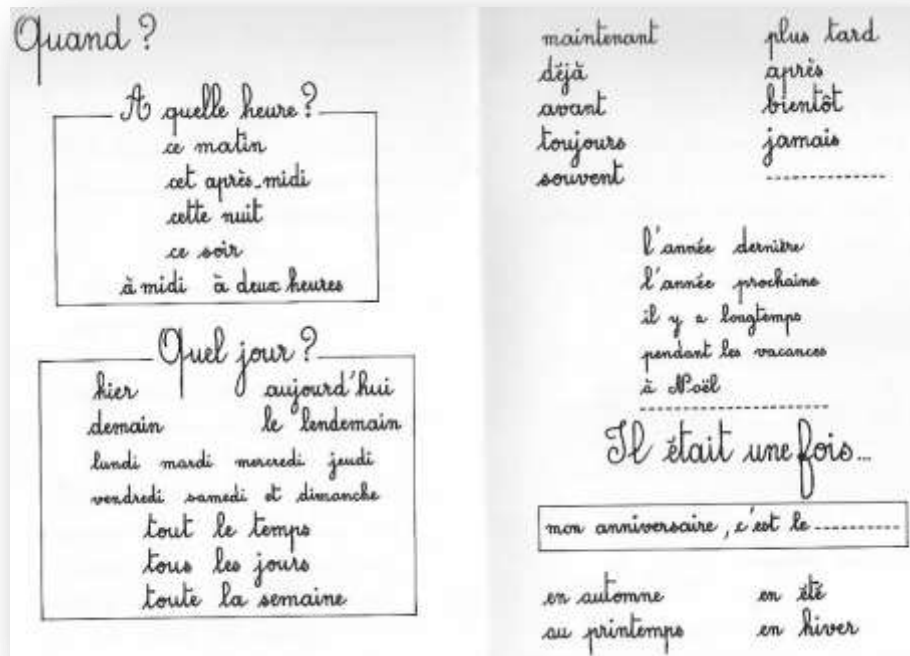 Quand ?
A quelle heure ?
ce matin
cet après-midi
cette nuit
ce soir
à midi à deux heures
Quel jour ?
hier aujourd'hui
demain le lendemain
lundi mardi mercredi jeudi
vendredi samedi et dimanche
tout le temps
tous les jours
toute la semaine
maintenant plus tard
déjà après
avant bientôt
toujours jamais
souvent ----------
l'année dernière
l'année prochaine
il y a longtemps
pendant les vacances
à Noël
----------
Il était une fois...
mon anniversaire, c'est le ----------
en automne en été
au printemps en hiver